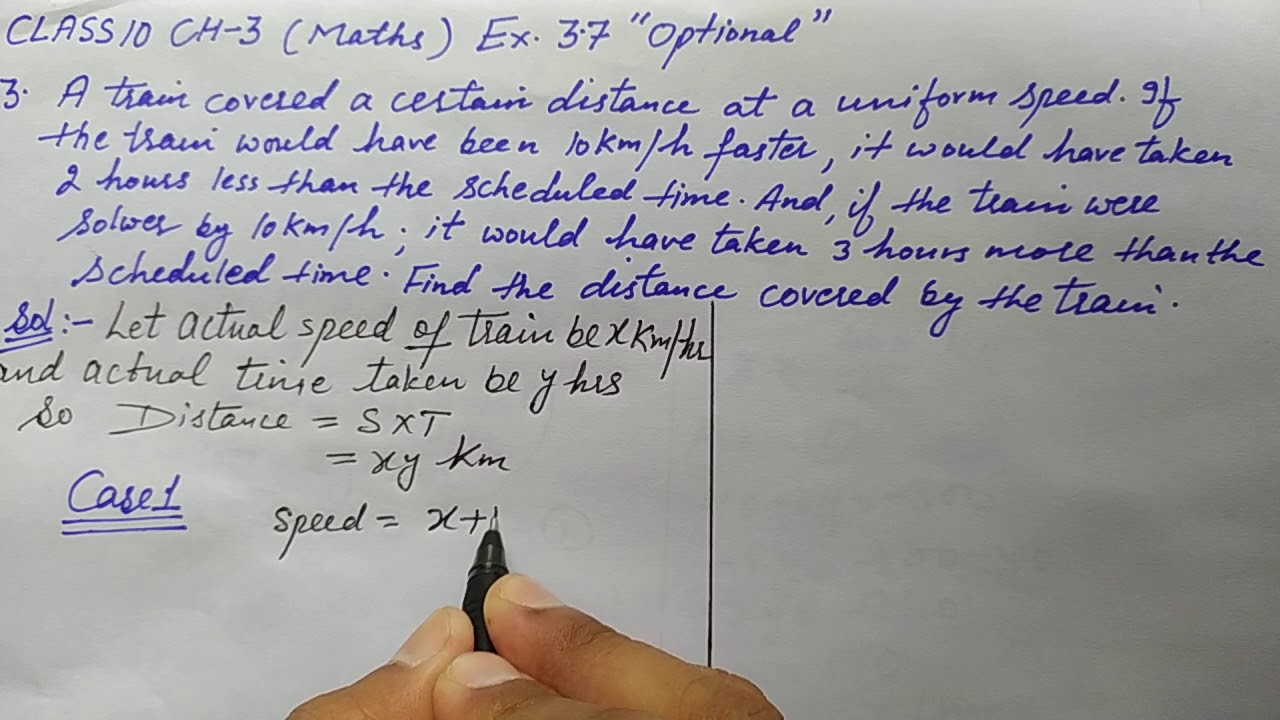 CLASS 10 CH-3 (Maths) Ex. 3.7 "Optional"
3. A train covered a certain distance at a uniform speed. If
the train would have been 10km/h faster, it would have taken
2 hours less than the scheduled time. And, if the train were
solwer by 10km/h; it would have taken 3 hours more than the
scheduled time. Find the distance covered by the train.
Sol:- Let actual speed of train be x km/hr
and actual time taken be y hrs
So Distance = S x T
= xy km
Case 1
Speed = x+1